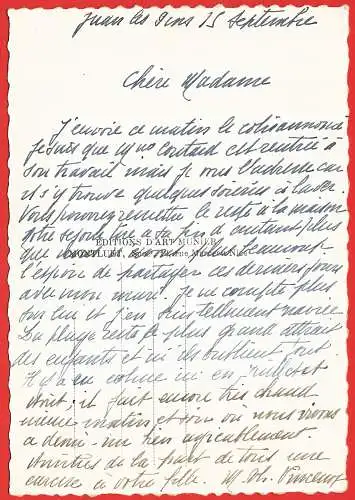 Juan les Pins 15 Septembre
Chère Madame
J'envoie ce matin le colis annoncé
Je sais que Coutard est rentrée à
son travail mais je vous l'adresse car
il s'y trouve quelques soieries à laver.
Vous pourrez remettre le reste à la maison
notre séjour tire à sa fin d'autant plus
ÉDITIONS D'ART MUNIER
que
l'espoir de partager ces derniers jours
avec mon mari. Je ne compte plus
sur lui et j'en suis tellement navrée
La plage reste le plus grand attrait
des enfants et ils oublient tout.
Il y a eu calme en juillet
Août; il fait encore très chaud
même matin et soir où nous vivons
a demi-nu très agréablement.
Amitiés de la part de tous une
caresse à votre fille. Vincent